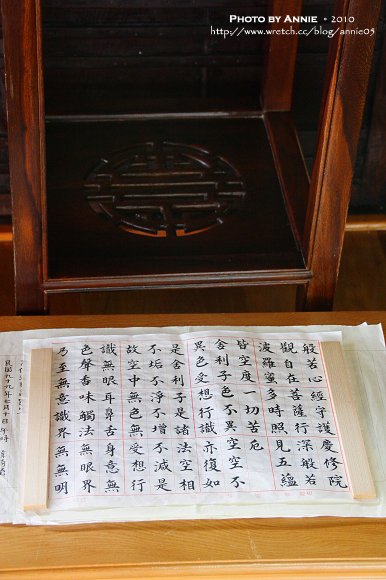 PHOTO BY ANNIE • 2010
http://www.wretch.cc/blog/annie05
般若心經守護慶修院
觀自在菩薩行深般若
波羅蜜多時照見五蘊
皆空度一切苦厄
舍利子色不異空空不
異色受想行識亦復如
是舍利子是諸法空相
不垢不淨不增不減是
故空中無色無受想行
識無眼耳鼻舌身意無
色聲香味觸法無眼界
乃至無意識界無無明
民國九十九年七月十日